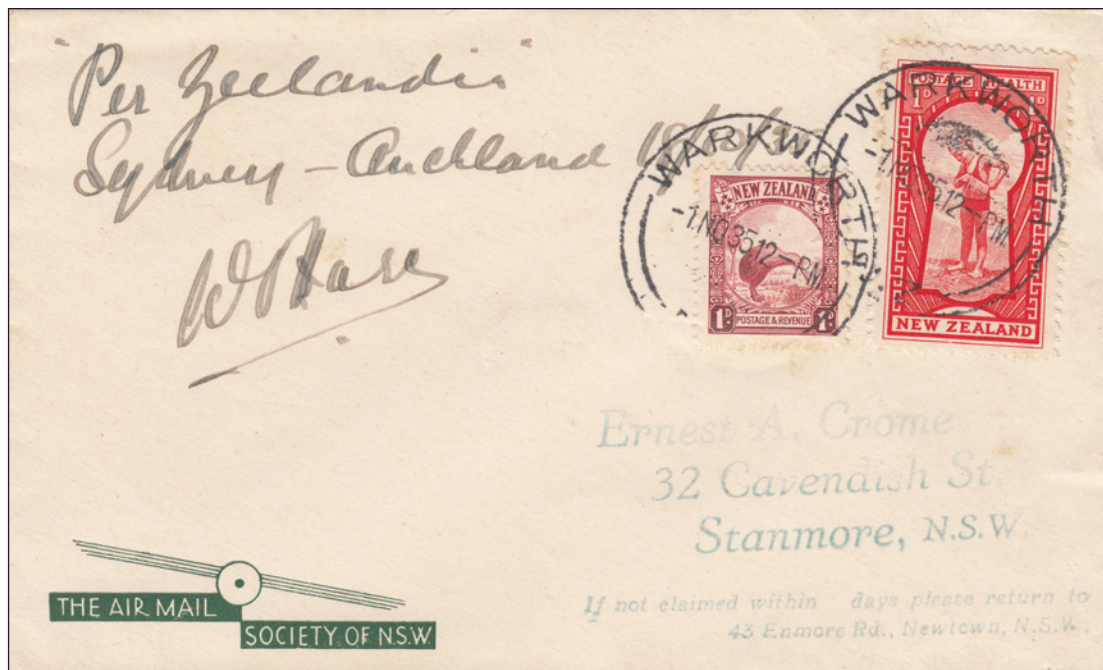 "Per Zeelandia"
Sydney - Auckland
WARKWORTH
-1.NO.35 12-PM
WARKWORTH
-1.NO.35 12-PM
NEW ZEALAND
1D
POSTAGE & REVENUE
POSTAGE HEALTH
1D D
NEW ZEALAND
Ernest A. Crome
32 Cavendish St.
Stanmore, N.S.W.
If not claimed within days please return to
43 Enmore Rd., Newtown, N.S.W.
THE AIR MAIL
SOCIETY OF N.S.W